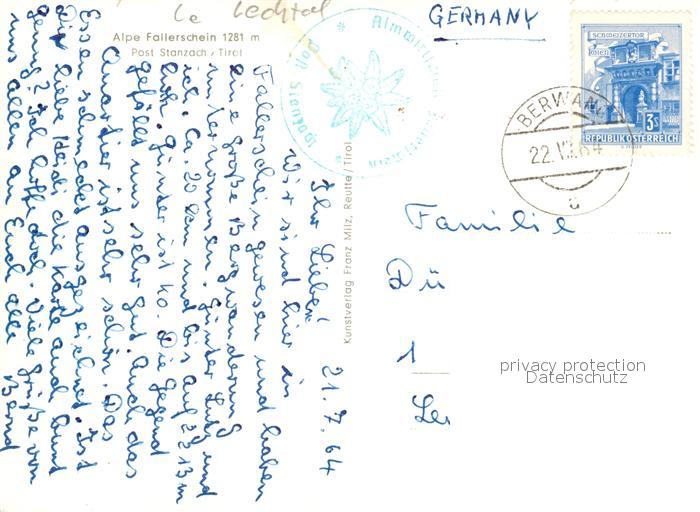 Le Lechtal
Alpe Fallerschein 1281 m
Post Stanzach / Tirol
GERMANY
SCHWEIZERTOR
WIEN
3 S
REPUBLIK ÖSTERREICH
BERWANG
22.VII.64
a
Almwirtschaft
Post Stanzach
Kunstverlag Franz Milz, Reutte / Tirol
21.7.64
Ihr Lieben!
Wir sind hier in
Fallerschein gewesen und haben
eine große Bergwanderung
unternommen. Günter Lutz und
ich. Ca 20 km und bis auf 2213 m
hoch. Günter ist k.o. Die Gegend
gefällt uns sehr gut. Auch das
Quartier ist sehr schön. Das
Essen schmeckt ausgezeichnet. Ist
Dir liebe Heidi die Karte auch bunt
genug? Ich hoffe doch. Viele Grüße von
uns allen an Euch alle
Bernd
Familie
Dü
1
Le
privacy protection
Datenschutz